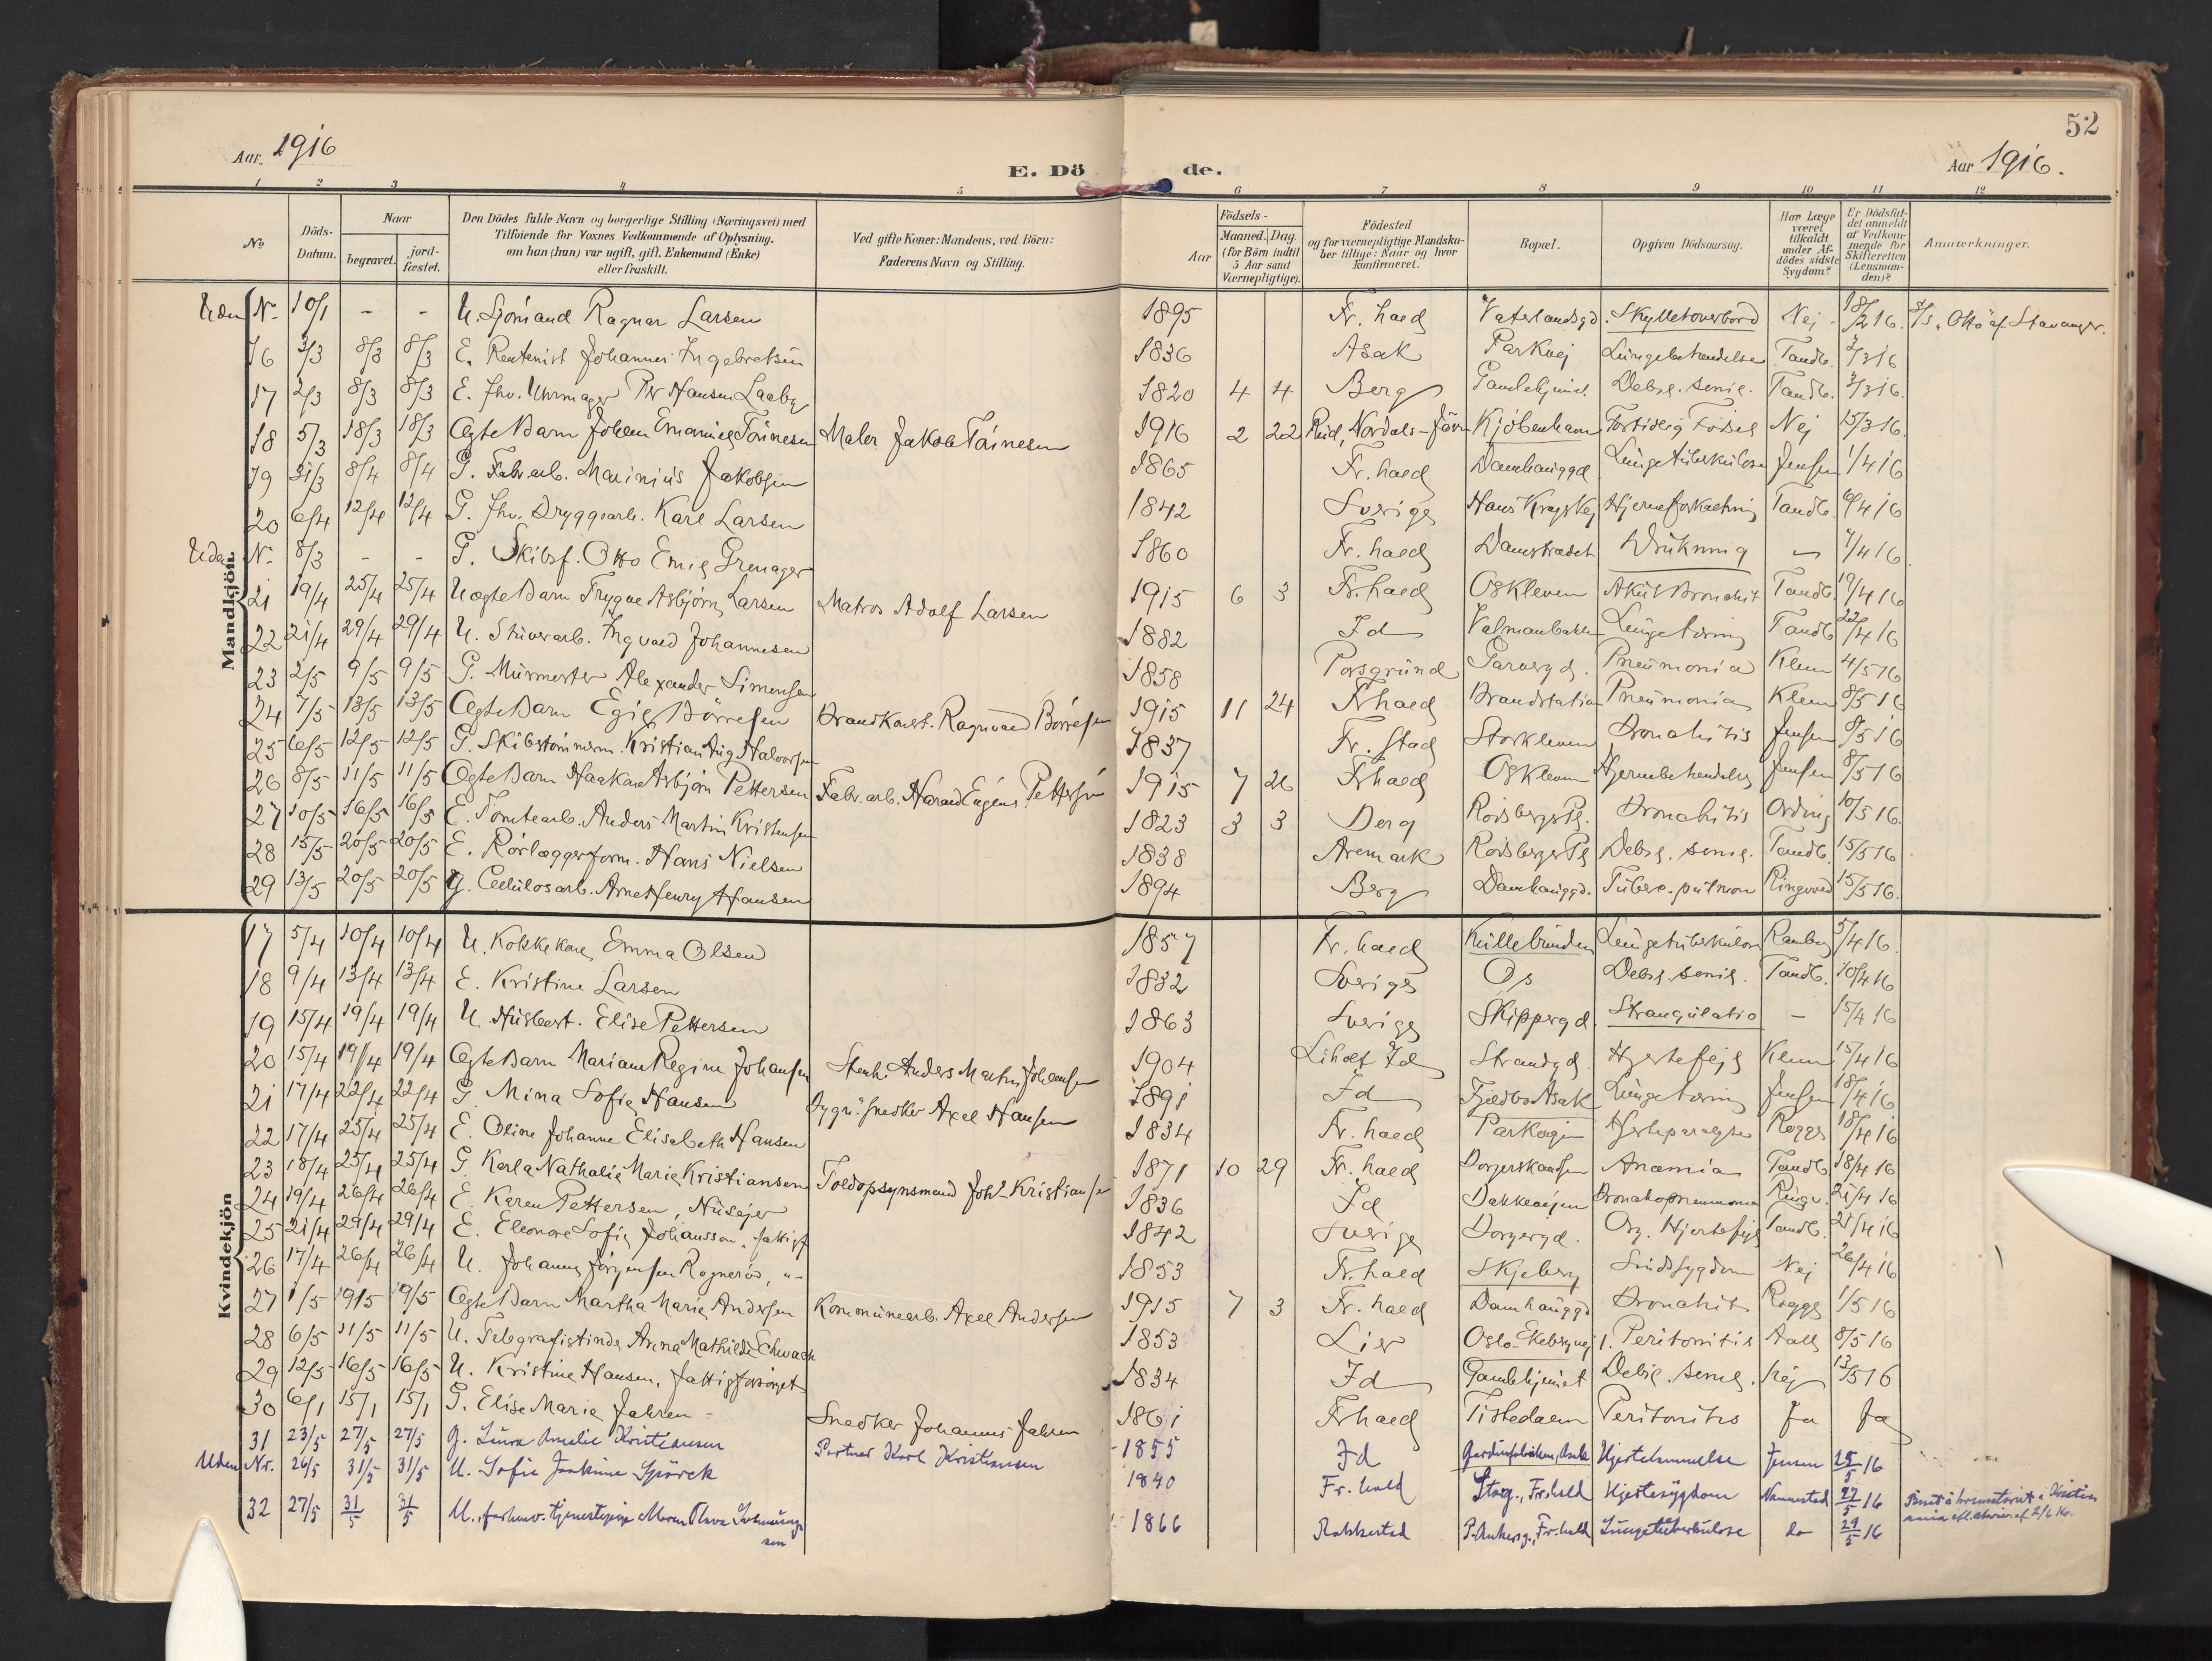 52
Aar 1916 E. Döde. Aar 1916.
1 2 3 4 5 6 7 8 9 10 11 12
No
Döds-Datum.
Naar begravet. jordfæstet.
Den Dödes fulde Navn og borgerlige Stilling (Næringsvei) med Tilföiende for Voxnes Vedkommende af Oplysning, om han (hun) var ugift, gift, Enkemand (Enke) eller fraskilt.
Ved gifte Koner: Mandens, ved Börn: Faderens Navn og Stilling.
Födsels-
Aar Maaned. Dag. (for Börn indtil 5 Aar samt Værnepligtige).
Födested og for værnepligtige Mandskaber tillige: Naar og hvor konfirmeret.
Bopæl.
Opgiven Dödsaarsag.
Har Læge været tilkaldt under Afdödes sidste Sygdom?
Er Dödsfaldet anmeldt af Vedkommende for Skifteretten (Lensmanden)?
Anmærkninger.
Mandkjön.
Uden Nr 10/1 - - U. Sjömand Ragnar Larsen 1895 Fr.hald Vaterlandsgd. Skylletoverbord Nej 18/2 16. S/S "Otto" af Stavanger.
16 2/3 8/3 8/3 E. Rentenist Johannes Ingebretsen 1836 Asak Parkvej Lungebetændelse Tandb. 2/3 16
17 2/3 8/3 8/3 E. Fhv. Uhrmager Per Hansen Laaby 1820 4 4 Berg Gamlehjemmet Debil. senil. Tandb. 3/3 16.
18 5/3 18/3 18/3 Ægte Barn Johan Emanuel Tönnesen Maler Jakob Tönnesen 1916 2 22 Kjöbenhavn Fortidlig Födsel Nej 15/3 16.
19 31/3 8/4 8/4 G. Fabr.arb. Marinius Jakobsen 1865 Fr.hald Damhauggd Lungetuberkulose Jensen 1/4 16
20 6/4 12/4 12/4 G. Fhv. Bryggearb. Karl Larsen 1842 Sverige Hans Kragskj. Hjerneforkalkning Tandb. 6/4 16
Uden Nr 8/3 - - G. Skibsf. Otto Emil Grenager 1860 Fr.hald Damstrædet Drukning - 7/4 16
21 19/4 25/4 25/4 Uægte Barn Trygve Asbjörn Larsen Matros Adolf Larsen 1915 6 3 Fr.hald Oskleven Akut Bronchit Tandb. 19/4 16
22 21/4 29/4 29/4 U. Stuerarb. Ingvald Johannesen 1882 Id Valmanbakken Lungetæring Tandb 22/4 16
23 2/5 9/5 9/5 G. Murmester Alexander Simensen 1858 Porsgrund Garvergd. Pneumonia Klem 4/5 16
24 7/5 13/5 13/5 Ægte Barn Egil Börresen Brandkonst. Ragnvald Börresen 1915 11 24 Fr.hald Brandstation Pneumonia Klem 8/5 16
25 6/5 12/5 12/5 G. Skibstömmerm. Kristian Aug. Halvorsen 1837 Fr.stad Storkleven Bronchitis Jensen 8/5 16
26 8/5 11/5 11/5 Ægte Barn Haakon Asbjörn Pettersen Fabr.arb. Harald Eugen Pettersen 1915 7 26 Fr.hald Oskleven Hjernebetændelse Jensen 8/5 16
27 10/5 16/5 16/5 E. Tomtearb. Anders Martin Kristensen 1823 3 3 Berg Rödsberg Pl. Bronchitis Ording 10/5 16.
28 15/5 20/5 20/5 E. Rörlæggerform. Hans Nielsen 1838 Aremark Rödsberg Pl Debil. senil. Tandb. 15/5 16
29 13/5 20/5 20/5 G. Cellulosarb. Arne Henry Hansen 1894 Berg Damhauggd. Tuberc. pulmon Ringvold 15/5 16.
Kvindekjön
17 5/4 10/4 10/4 U. Kokkekone Emma Olsen 1857 Fr.hald Kullebunden Lungetuberkulose Ramberg 5/4 16.
18 9/4 13/4 13/4 E. Kristine Larsen 1832 Sverige Os Debil. senil. Tandb. 10/4 16
19 15/4 19/4 19/4 U. Husbest. Elise Pettersen 1863 Sverige Skippergd. Strangulatio - 15/4 16
20 15/4 19/4 19/4 Ægte Barn Mariane Regine Johansen Stenh. Anders Martin Johansen 1904 Liholt Id Strandgd. Hjertefejl Klem 15/4 16
21 17/4 22/4 22/4 G. Mina Sofie Hansen Bygn.snedker Axel Hansen 1891 Id Fjeldbo Asak Lungetæring Jensen 18/4 16
22 17/4 25/4 25/4 E. Oline Johanne Elisabeth Hansen 1834 Fr.hald Parkvejen Hjerteparalyse Rogge 18/4 16
23 18/4 25/4 25/4 G. Karla Nathalie Marie Kristiansen Toldopsynsmand Johs. Kristiansen 1871 10 29 Fr.hald Anæmia Tandb 18/4 16
24 19/4 26/4 26/4 E. Karen Pettersen, Husejer 1836 Id Bakkevejen Bronchopneumonia Ringv. 21/4 16
25 21/4 29/4 29/4 E. Eleonore Sofie Johansson, fattigf 1842 Sverige Borgergd. Org. Hjertefejl Tandb. 25/4 16
26 17/4 26/4 26/4 U. Johanne Jörgensen Rognerös, "- 1853 Fr.hald Skjeberg Sindssygdom Nej 26/4 16
27 1/5 19/5 19/5 Ægte Barn Martha Marie Andersen Kommunearb. Axel Andersen 1915 7 3 Fr.hald Damhauggd Bronchit Rogge 1/5 16
28 6/5 11/5 11/5 U. Telegrafistinde Anna Mathilde Schwach 1853 Lier Oslo-Ekebergvej 1. Peritonitis Aall 8/5 16
29 12/5 16/5 16/5 U. Kristine Hansen, fattigforsörget 1834 Id Gamlehjemmet Debil. senil. Nej 13/5 16
30 6/1 15/1 15/1 G. Elise Marie Jahren - Snedker Johannes Jahren 1861 Fr.hald Tistedalen Peritonitis Ja Ja
31 23/5 27/5 27/5 G. Laura Amalie Kristiansen Portner Karl Kristiansen 1855 Id Gardinfabriken, Asak Hjertelammelse Jensen 25/5 16
Uden Nr. 26/5 31/5 31/5 U. Sofie Joakime Spörck 1840 Fr.hald Storg., Fr.hald Hjertesygdom Nannestad 27/5 16
32 27/5 31/5 31/5 U. forhenv. tjenestepige Maren Olava 1866 Rakkestad P. Ankersg., Fr.hald Lungetuberkulose do 29/5 16